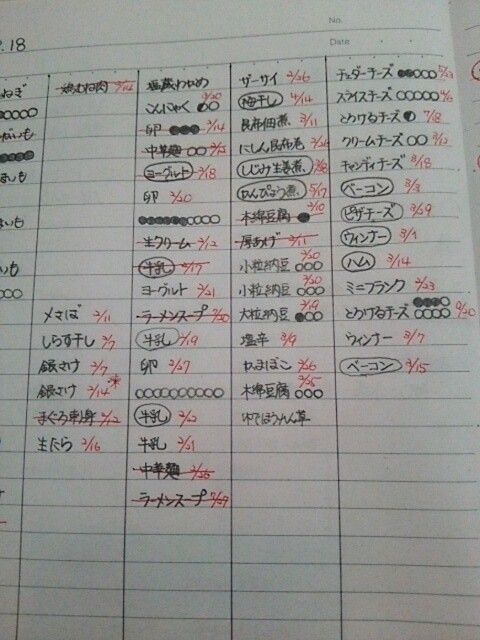 No.
Date
.18
ねぎ
いも
いも
鶏むね肉 2/14
メマば 2/11
しらす干し 2/7
銀さけ 2/7
銀さけ 2/14
まぐろ刺身 2/12
生たら 2/16
塩蔵わかめ
こんにゃく ●○ 3/20
卵 ●●●● 2/14
中華麺 ○○ 2/13
ヨーグルト 2/18
卵 2/20
●●●●●●○○○○
生クリーム 2/12
牛乳 2/17
ヨーグルト 2/21
ラーメンスープ
牛乳 2/19
卵 2/27
○○○○○○○○○○
牛乳 2/22
牛乳 2/21
中華麺 2/25
ラーメンスープ 7/29
ザーサイ 2/26
梅干し 4/14
昆布佃煮 3/11
にしん昆布巻
しじみ生姜煮
かんぴょう煮 5/17
木綿豆腐 ● 2/10
厚あげ 2/11
小粒納豆 ○○○ 2/20
小粒納豆 ○○○ 2/20
大粒納豆 ●○○ 2/19
塩辛 3/9
かまぼこ 2/26
木綿豆腐 ○○○ 2/25
ゆでほうれん草
チェダーチーズ ●●○○○ 5/23
スライスチーズ ○○○○○
とろけるチーズ ● 7/18
クリームチーズ ○○
キャンディチーズ 8/18
ベーコン 3/3
ピザチーズ 3/29
ウィンナー 3/1
ハム 3/14
ミニフランク 2/23
とろけるチーズ ○○○ 9/20
ウィンナー 3/7
ベーコン 3/15